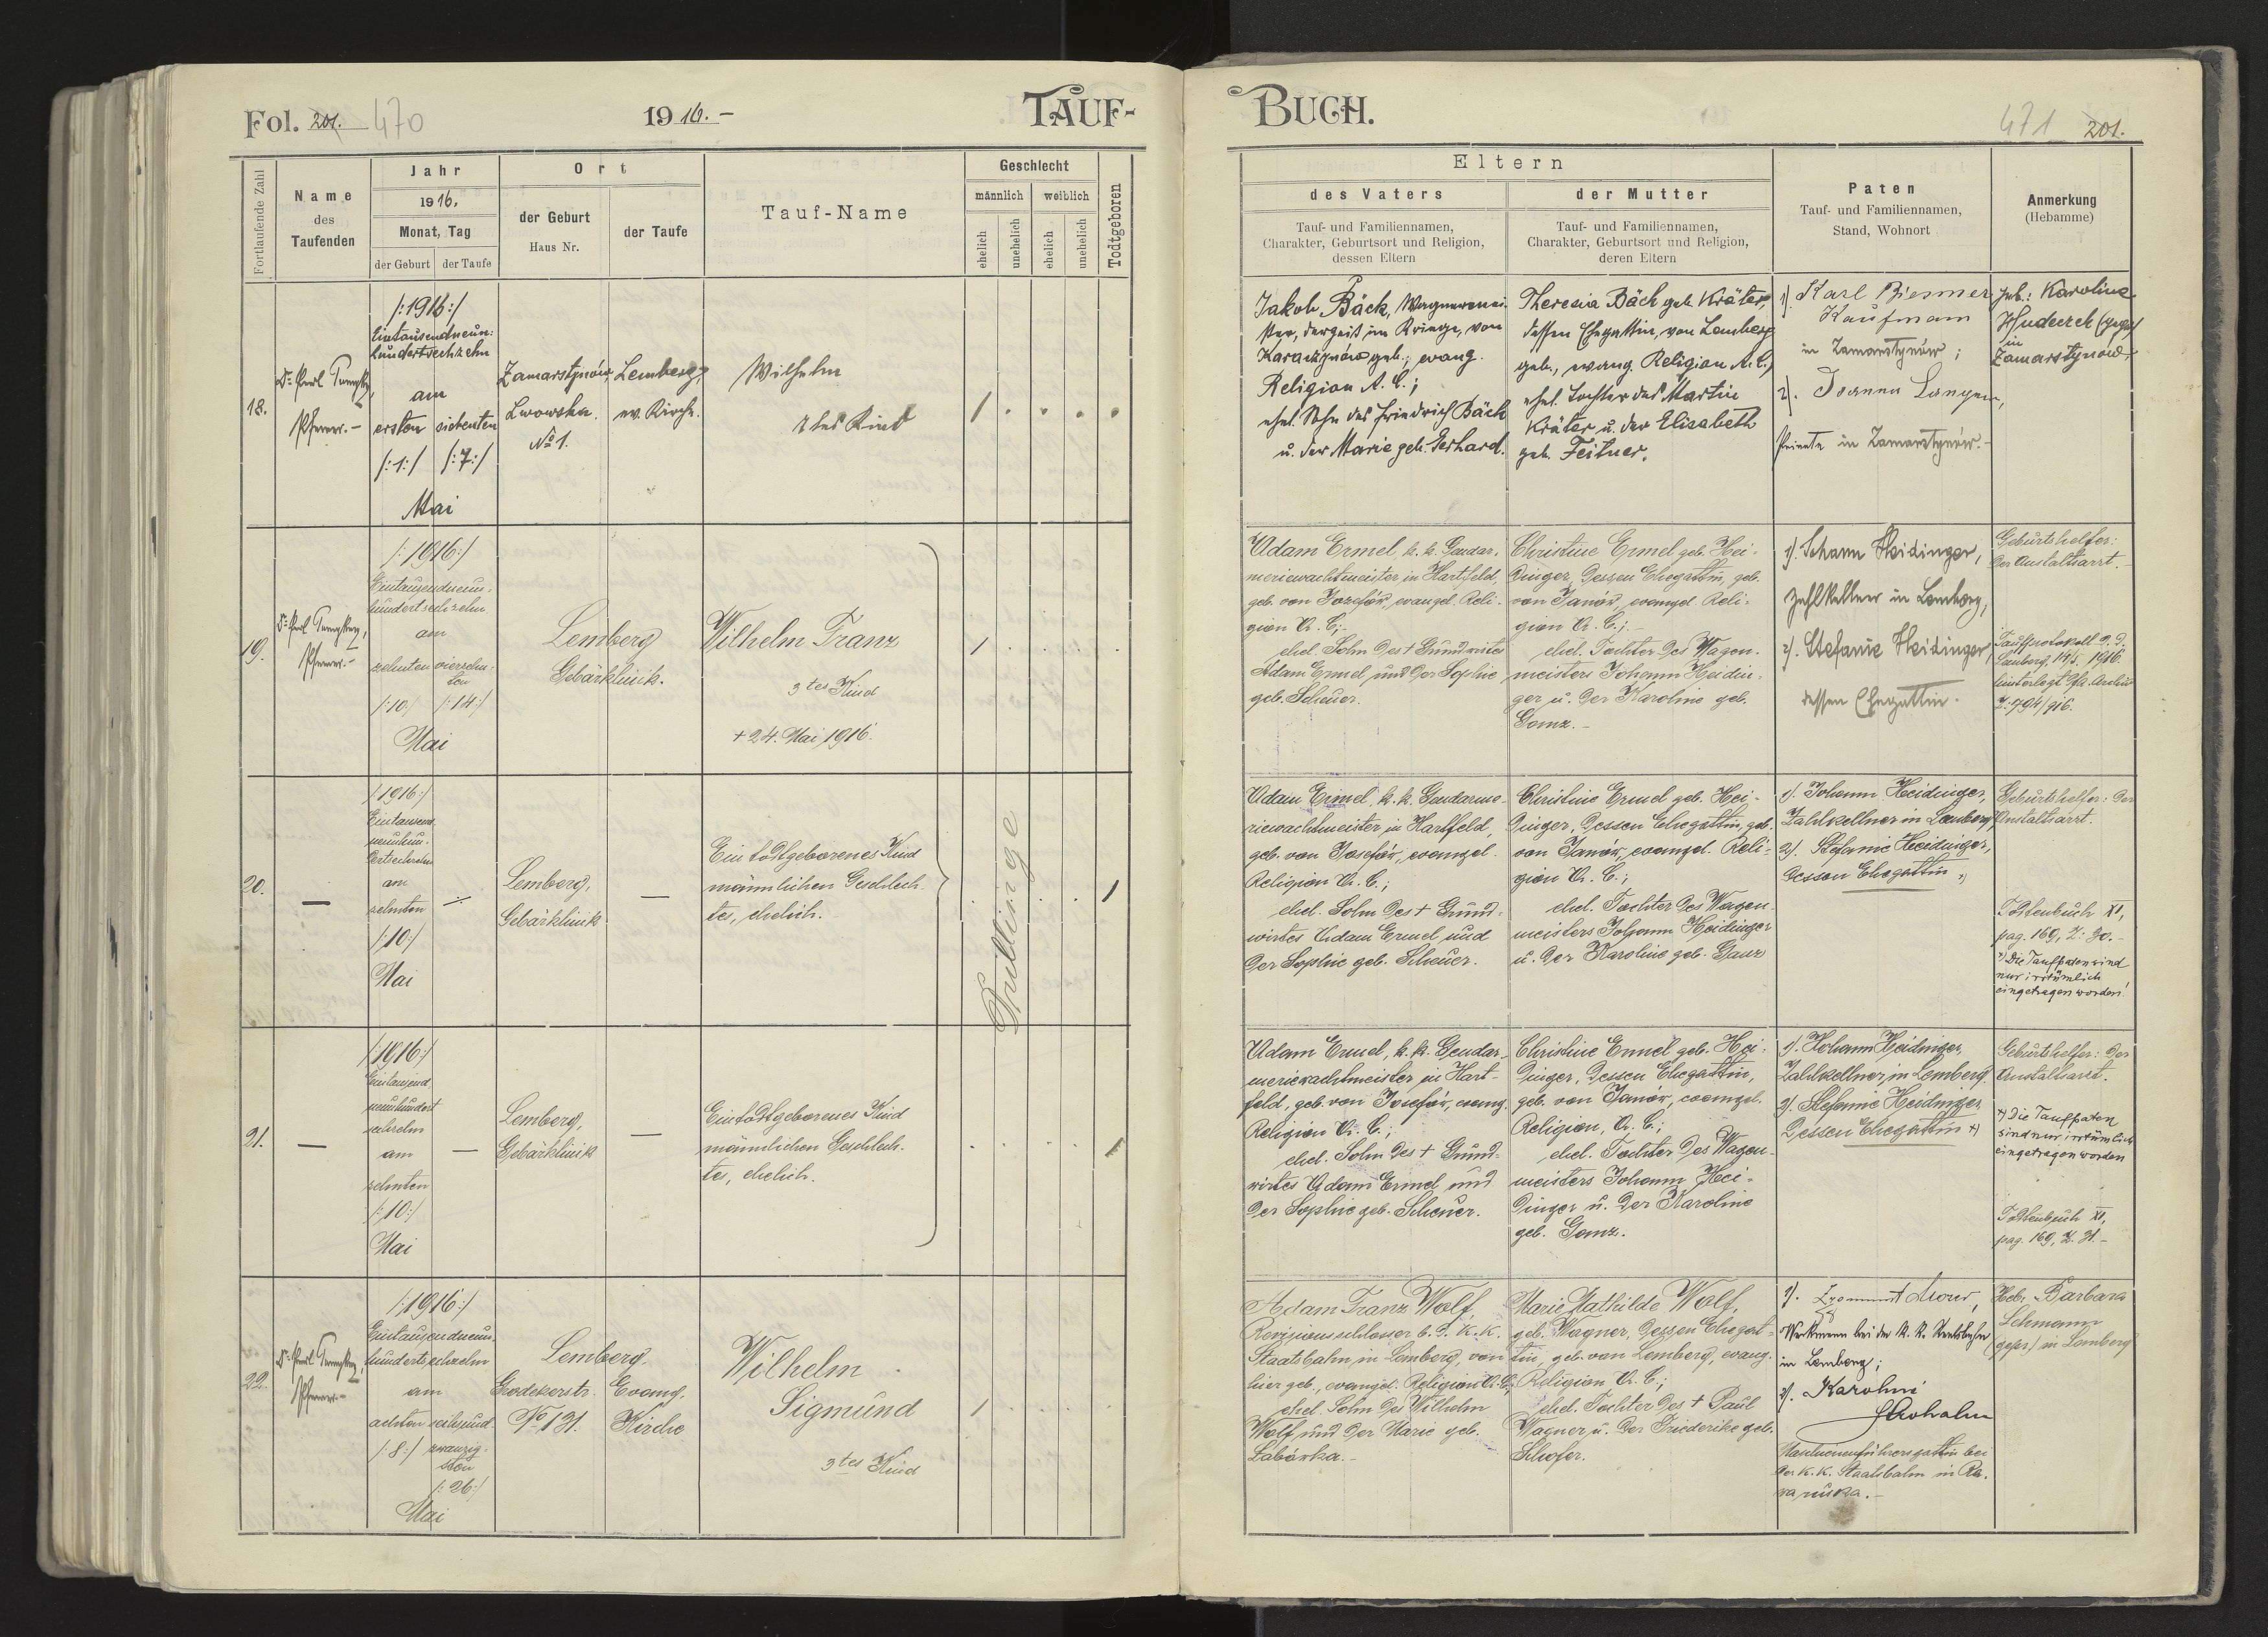 Fol. 201. 470
1916. –
TAUF-
Fortlaufende Zahl
Name
des
Taufenden
Jahr
1916.
Monat, Tag
der Geburt
der Taufe
Ort
der Geburt
Haus Nr.
der Taufe
Tauf-Name
Geschlecht
männlich
weiblich
ehelich
unehelich
ehelich
unehelich
Todtgeboren
18.
Pfarrer. –
/:1916:/
Eintausendneun:
hundertsechzehn
am
ersten siebenten
/:1:/ /:7:/
Mai
Zamarstynów,
Lwowska
No 1.
Lemberg,
ev. Kirche.
Wilhelm
1tes Kind
19.
Pfarrer. –
/:1916:/
Eintausendneun-
hundertsechzehn
am
zehnten vierzehn-
ten
/:10:/ /:14:/
Mai
Lemberg
Gebärklinik.
Wilhelm Franz
3tes Kind
+ 24. Mai 1916.
20.
/:1916:/
Eintausend
neunhun-
dertsechzehn
am
zehnten
/:10:/
Mai
Lemberg,
Gebärklinik
Ein todtgeborenes Kind
männlichen Geschlech-
tes, ehelich.
Drillinge
21.
/:1916:/
Eintausend
neunhundert
sechzehn
am
zehnten
/:10:/
Mai
Lemberg,
Gebärklinik
Ein todtgeborenes Kind
männlichen Geschlech-
tes, ehelich.
22.
Pfarrer. –
/:1916:/
Eintausendneun-
hundertsechzehn
am
achten sechsund-
/:8:/ zwanzig-
sten
/:26:/
Mai
Lemberg
Grodekerstr.
No 131.
Evang.
Kirche
Wilhelm
Sigmund
3tes Kind
BUCH.
471 201.
Eltern
des Vaters
Tauf- und Familiennamen,
Charakter, Geburtsort und Religion,
dessen Eltern
der Mutter
Tauf- und Familiennamen,
Charakter, Geburtsort und Religion,
deren Eltern
Paten
Tauf- und Familiennamen,
Stand, Wohnort
Anmerkung
(Hebamme)
Jakob Bäck, Wagnermei-
ster, derzeit im Kriege, von
geb., evang.
Religion A. C.;
ehel. Sohn des Friedrich Bäck
u. der Marie geb. Gerhard.
Theresia Bäck geb. Kräter,
dessen Ehegattin, von Lemberg
geb., evang. Religion A. C.,
ehel. Tochter des Martin
Kräter u. der Elisabeth
geb. Feitner.
1). Karl
Kaufmann
in Zamarstynów;
2). Joanna Langer,
Private in Zamarstynów. –
Heb.: Karoline
in
Zamarstynów
Adam Ermel k. k. Gendar-
meriewachtmeister in Hartfeld,
geb. von Josefów, evangel. Reli-
gion A. C.;
ehel. Sohn des + Grundwirtes
Adam Ermel und der Sophie
geb. Scheuer.
Christine Ermel geb. Hei-
dinger, dessen Ehegattin, geb.
von Janów, evangel. Reli-
gion A. C.;
ehel. Tochter des Wagen-
meisters Johann Heidin-
ger u. der Karoline geb.
Ganz. –
1). Johann Heidinger,
Zahlkellner in Lemberg,
2). Stefanie Heidinger,
dessen Ehegattin.
Geburtshelfer:
der Anstaltsarzt. –
Taufprotokoll d. d.
Lemberg, 14/5. 1916.
hinterlegt Pfa. Archiv
Z: 794/916.
Adam Ermel, k. k. Gendarme-
riewachtmeister in Hartfeld,
geb. von Josefów, evangel.
Religion A. C.;
ehel. Sohn des + Grund-
wirtes Adam Ermel und
der Sophie geb. Scheuer.
Christine Ermel geb. Hei-
dinger, dessen Ehegattin, geb.
von Janów, evangel. Reli-
gion A. C.;
ehel. Tochter des Wagen-
meisters Johann Heidinger
u. der Karoline geb. Ganz
1). Johann Heidinger,
Zahlkellner in Lemberg,
2). Stefanie Heidinger,
dessen Ehegattin. x)
Geburtshelfer: der
Anstaltsarzt.
Todtenbuch XI,
pag. 169, Z: 30. –
x) Die Taufpaten sind
nur irrtümlich
eingetragen worden!
Adam Ermel, k. k. Gendar-
meriewachtmeister in Hart-
feld, geb. von Josefów, evang.
Religion A. C.;
ehel. Sohn des + Grund-
wirtes Adam Ermel und
der Sophie geb. Scheuer.
Christine Ermel geb. Hei-
dinger, dessen Ehegattin,
geb. von Janów, evangel.
Religion, A. C.;
ehel. Tochter des Wagen-
meisters Johann Hei-
dinger u. der Karoline
geb. Ganz.
1). Johann Heidinger,
Zahlkellner in Lemberg
2). Stefanie Heidinger
dessen Ehegattin x)
Geburtshelfer: der
Anstaltsarzt.
x) Die Taufpaten
sind nur irrtümlich
eingetragen worden
Todtenbuch XI,
pag. 169, Z. 31. –
Adam Franz Wolf,
Revisionsschlosser b. d. k. k.
Staatsbahn in Lemberg, von
hier geb., evangel. Religion A. C.;
ehel. Sohn des Wilhelm
Wolf und der Marie geb.
Labórka. –
Marie Mathilde Wolf,
geb. Wagner, dessen Ehegat-
tin, geb. von Lemberg, evang.
Religion A. C.;
ehel. Tochter des + Paul
Wagner u. der Friederike geb.
Schofer.
1).
Werkmann bei der k. k. Staatsbahn
in Lemberg;
2). Karolina
Maschinenführersgattin bei
der k. k. Staatsbahn in Ra-
wa ruska. –
Heb: Barbara
Lehmann
(gepr.) in Lemberg